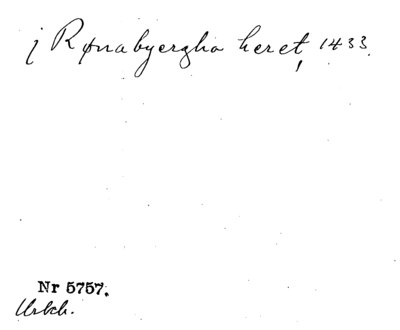 j Rønabyergha heret, 1433.
Nr 5757.
Urkb.